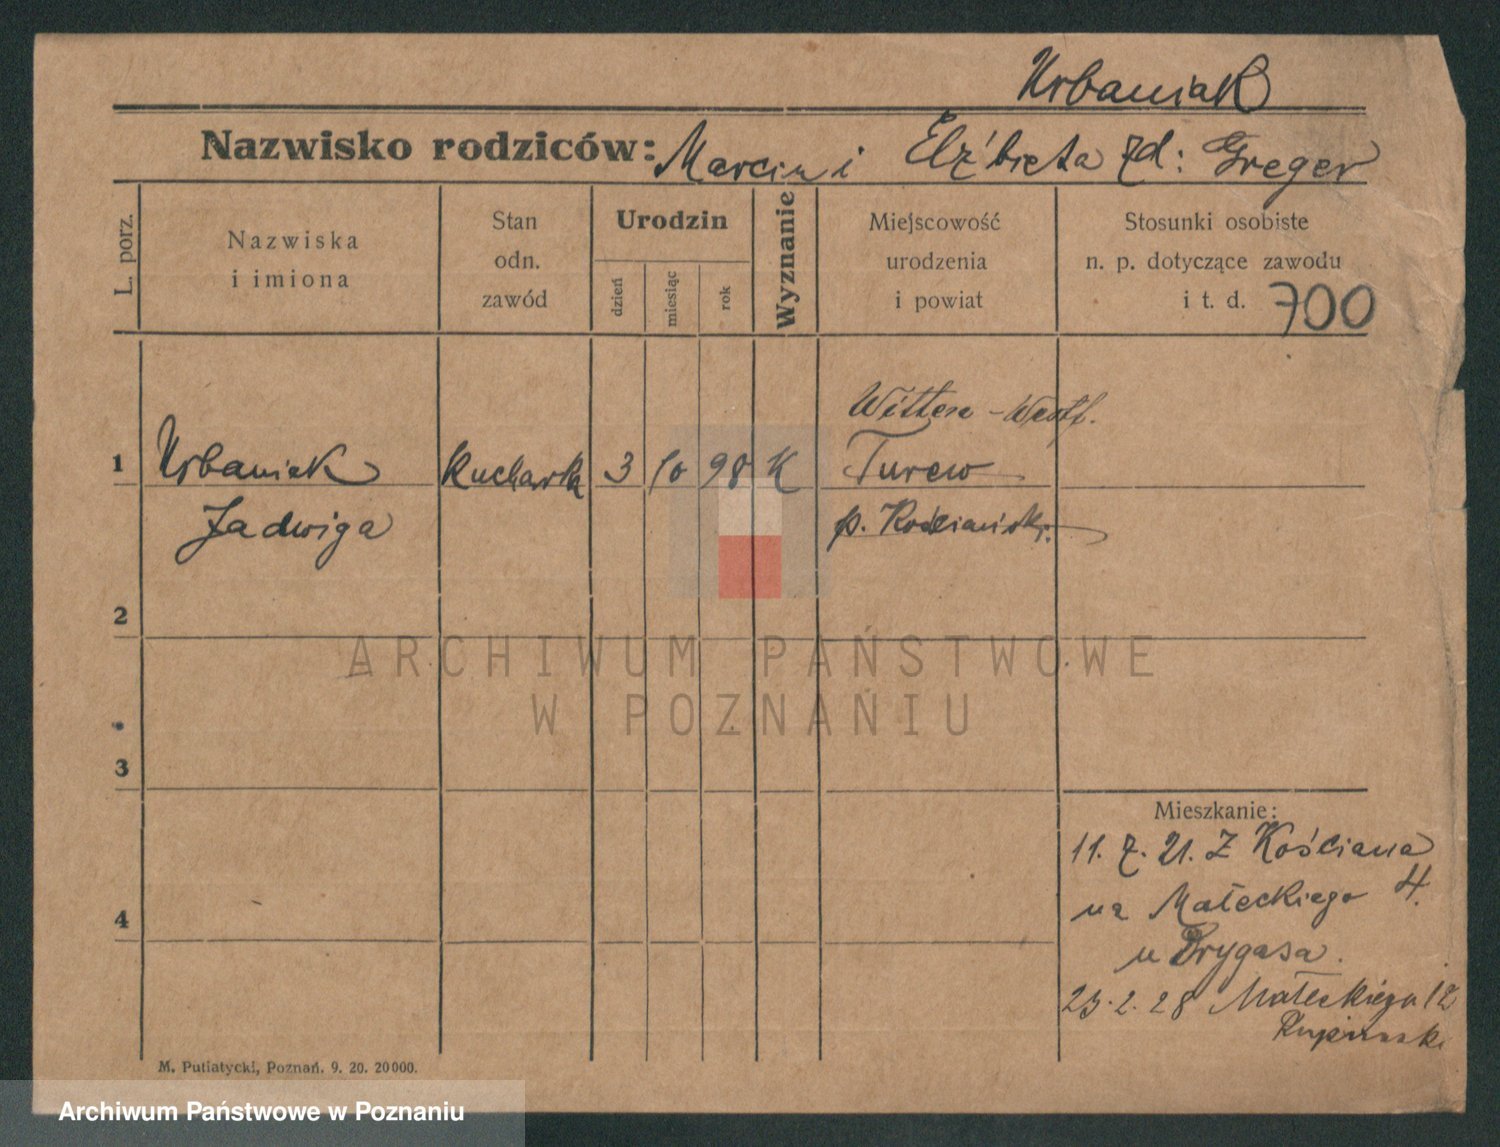 Urbaniak
Nazwisko rodziców: Marcin i Elżbieta zd: Greger
L. porz.
Nazwiska
i imiona
Stan
odn.
zawód
Urodzin
dzień
miesiąc
rok
Wyznanie
Miejscowość
urodzenia
i powiat
Stosunki osobiste
n. p. dotyczące zawodu
i t. d. 700
Witten - Westf.
1 Urbaniak Kucharka 3 10 98 K Turew
Jadwiga p. Kościański
2
3
4
Mieszkanie:
11. 7. 21. Z Kościana
na Małeckiego 4.
u Brygasa.
23. 2. 28 Małeckiego 12
M. Putiatycki, Poznań. 9. 20. 20000.
ARCHIWUM PAŃSTWOWE
W POZNANIU
Archiwum Państwowe w Poznaniu